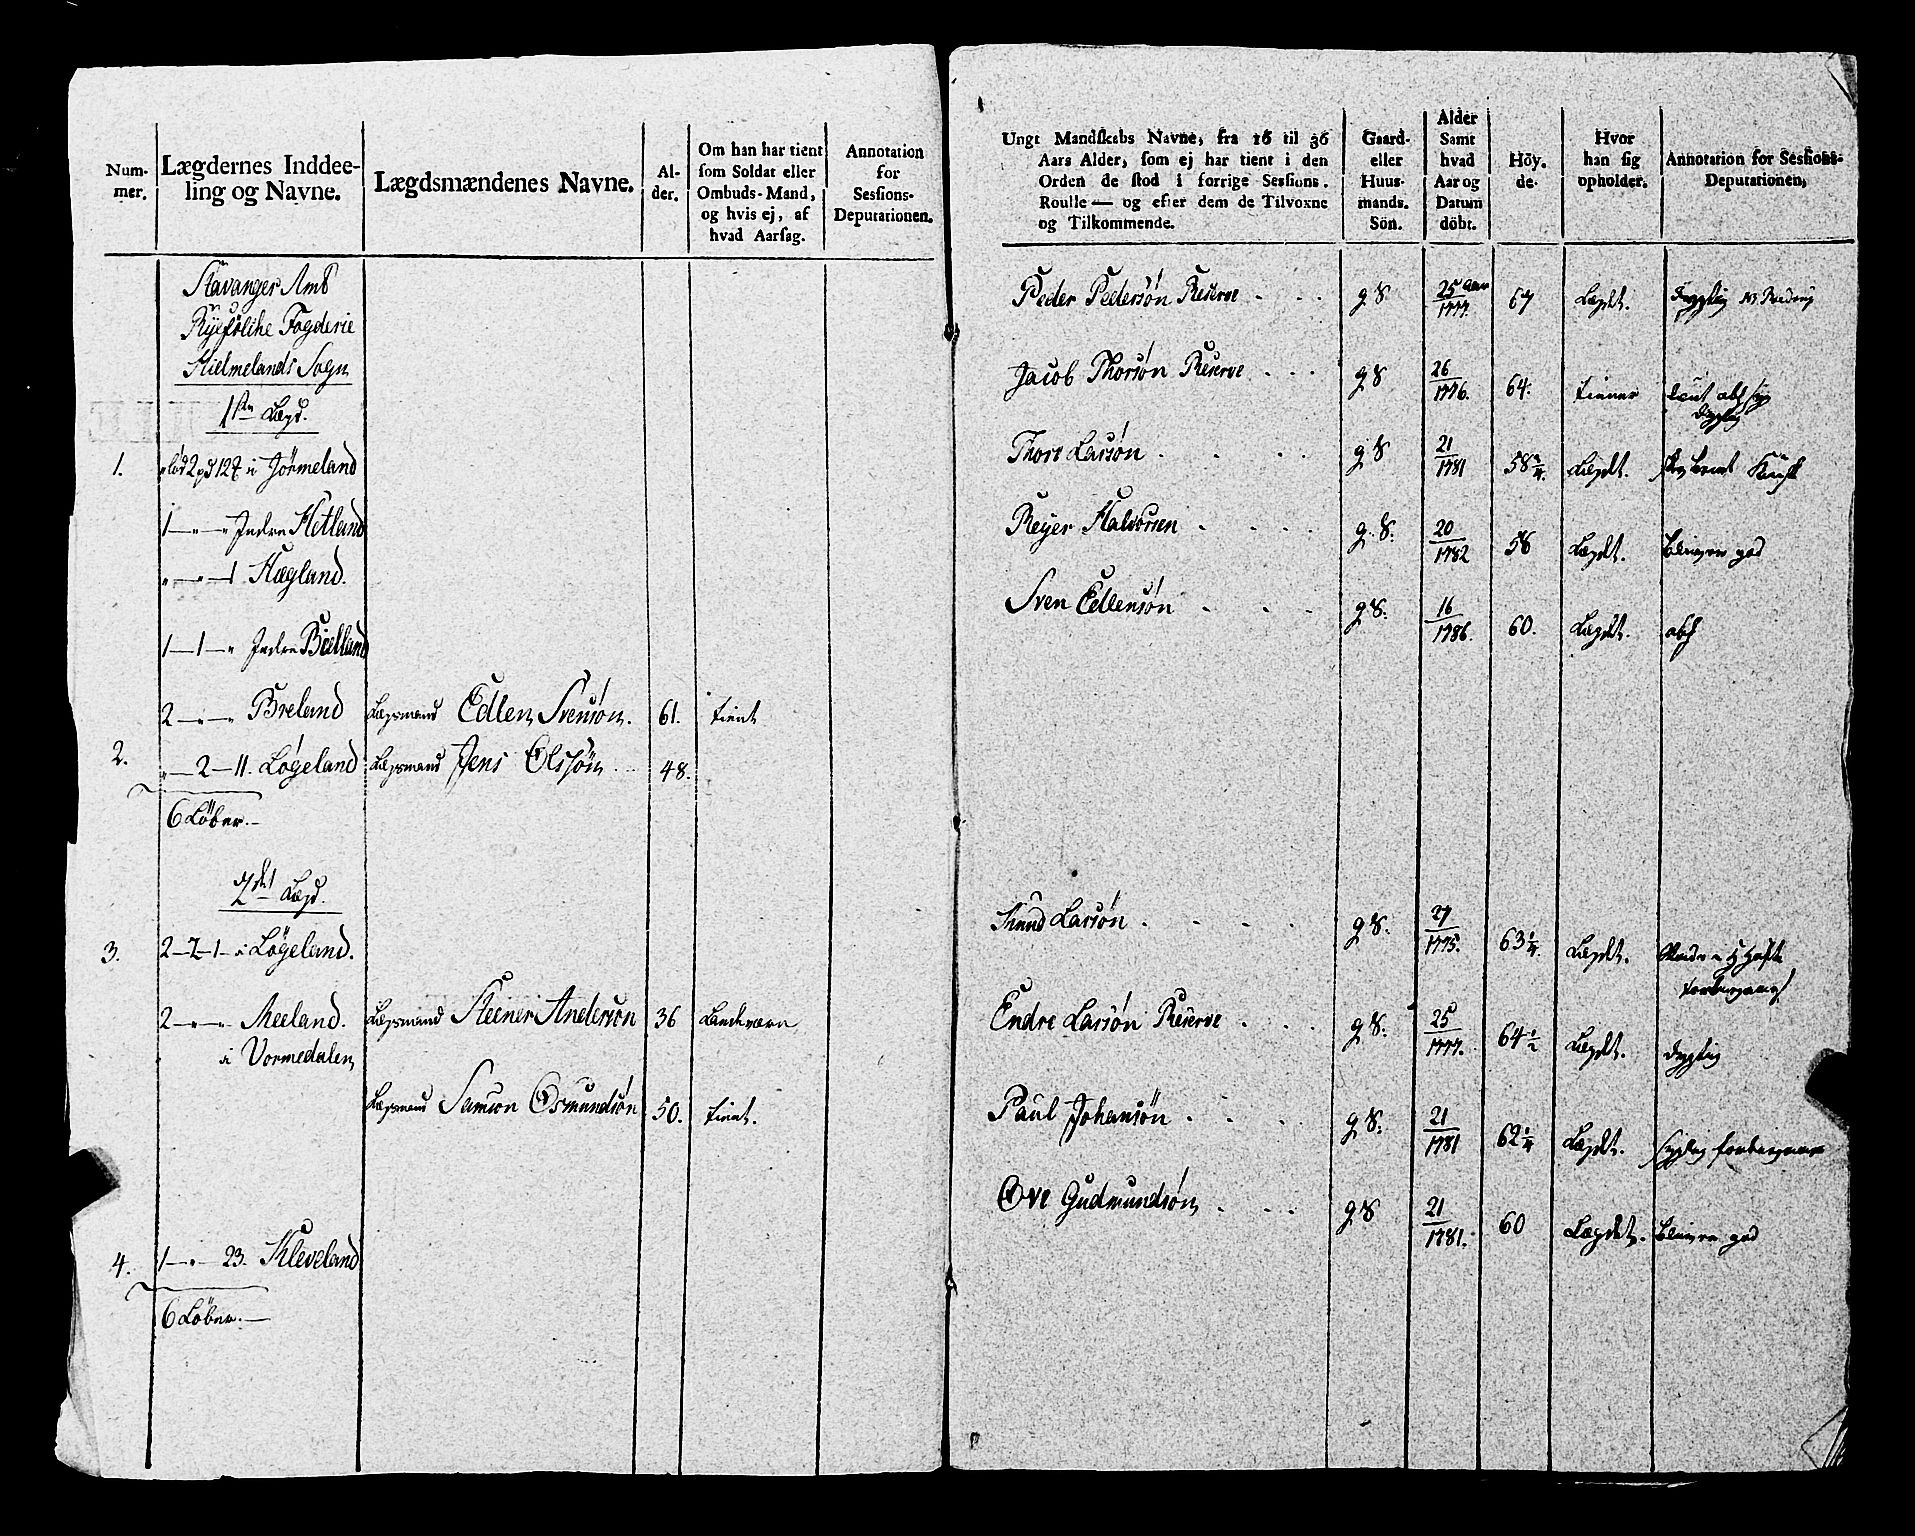 Num-
mer.
Lægdernes Inddee-
ling og Navne.
Lægdsmændenes Navne.
Al-
der.
Om han har tient
som Soldat eller
Ombuds-Mand,
og hvis ej, af
hvad Aarsag.
Annotation
for
Sessions-
Deputationen.
Stavanger Amt
Ryefølche Fogderie
Hielmelands Sogn
1ste Lægd.
1. Jørmeland
1 Indre Hetland
1 Hægland.
1 1 Indre Bielland
2 Breland Lægsmand Edlen Svensøn. 61. tient
2. 2 11. Løgeland Lægsmand Jens Olssøn 48.
6 Løber.
2det Lægd.
3. 2 2 1 i Løgeland.
2 Meeland. Lægsmand Steener Andersøn 36 Landeværn
i Vormedalen
Lægsmand Samson Osmundsøn 50. tient.
4. 1 23. Kleveland
6 Løber.
Ungt Mandskabs Navne, fra 16 til 36
Aars Alder, som ej har tient i den
Orden de stod i forrige Sessions-
Roulle — og efter dem de Tilvoxne
og Tilkommende.
Gaard-
eller
Huus-
mands-
Sön.
Alder
Samt
hvad
Aar og
Datum
döbt.
Höy-
de.
Hvor
han sig
opholder.
Annotation for Sessions-
Deputationen,
Peder Pedersøn Reserve g S 25 Aar 1777. 67 Lægdt. Dygtig
Jacob Thorsøn Reserve g S 26 1776. 64. tiener
Dygtig
Thore Larsøn g S 21 1781 58 3/4. Lægdt.
Reyer Halvorsen g. S. 20 1782 58 Lægdt. god
Sven Edlensøn g S. 16 1786. 60. Lægdt.
Knud Larsøn g S. 27 1775. 63 1/4 Lægdt.
Endre Larsøn Reserve g S. 25 1777. 64 1/2 Lægdt. dygtig
Paul Johansøn g S. 21 1781 62 1/4 Lægdt.
Ove Gudmundsøn g S 21 1781. 60 Lægdet. god